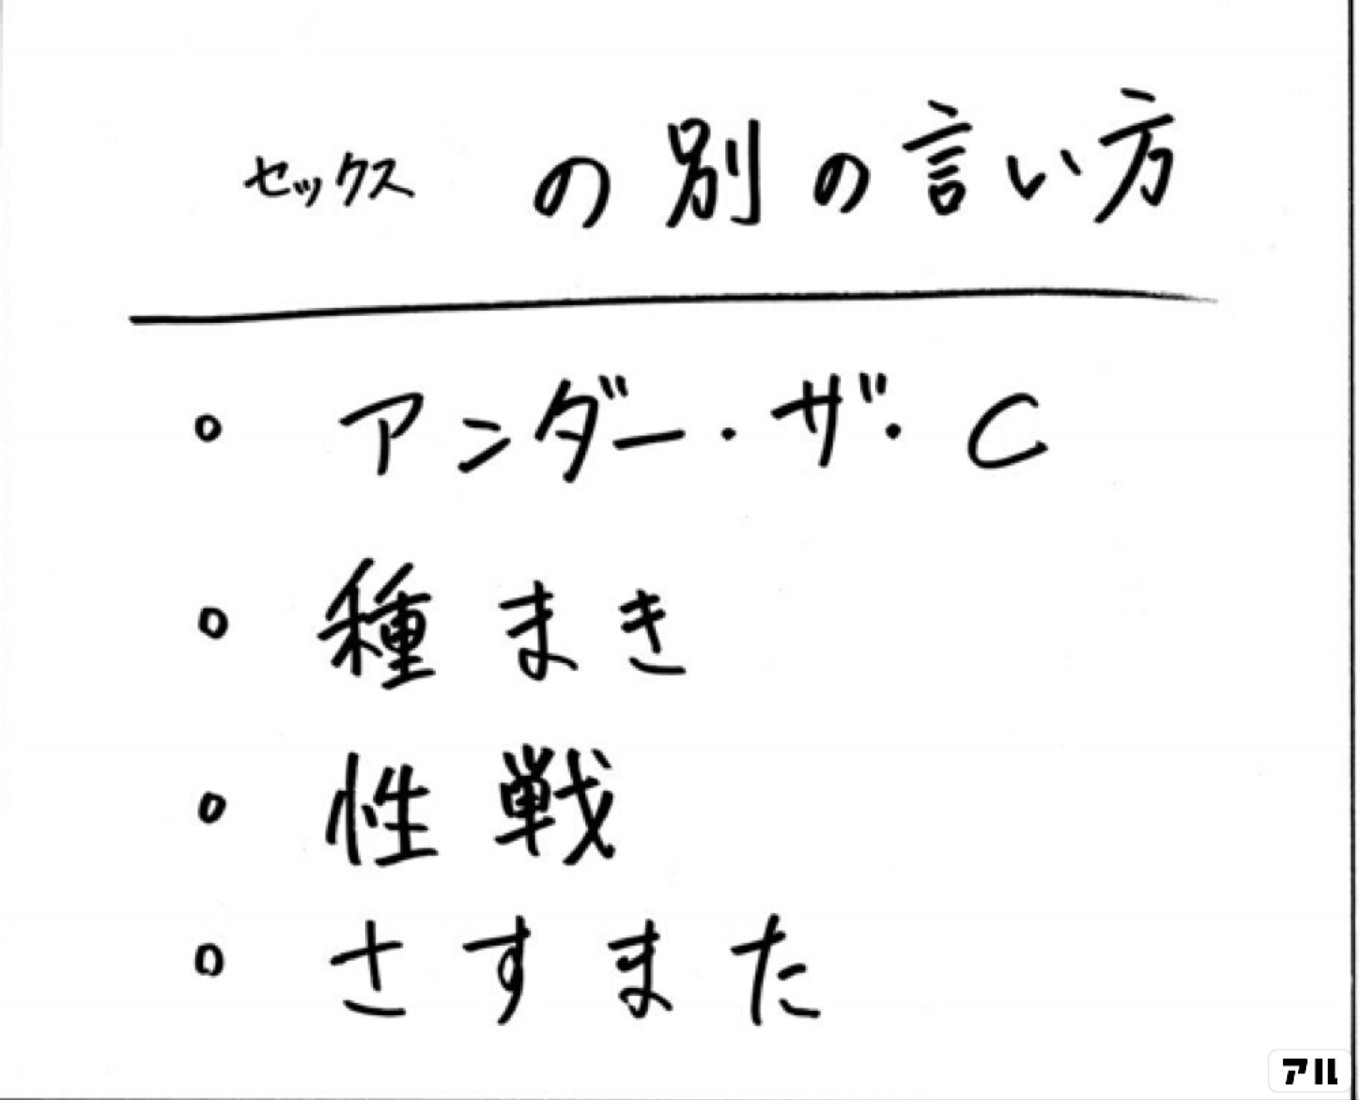 セックス の別の言い方
。アンダー・ザ・C
。種まき
。性戦
。さすまた
アル